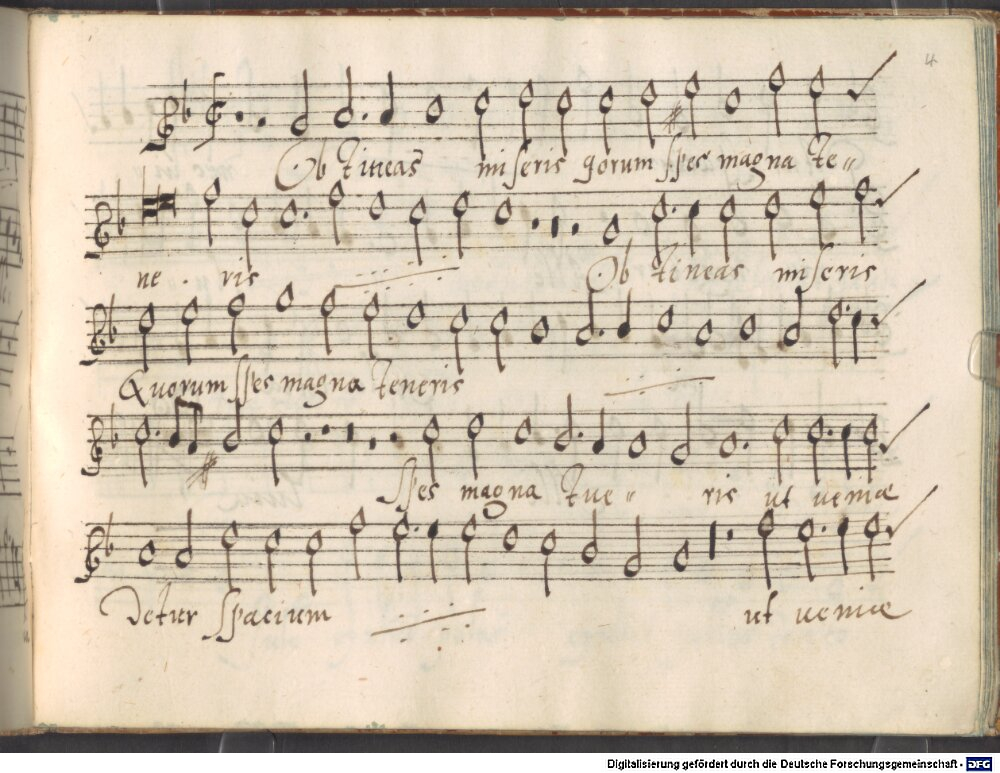 4
Obtineas miseris quorum spes magna te=
ne . ris Obtineas miseris
Quorum spes magna teneris
Spes magna tue= ris ut veniæ
Detur spacium ut veniæ
Digitalisierung gefördert durch die Deutsche Forschungsgemeinschaft - DFG